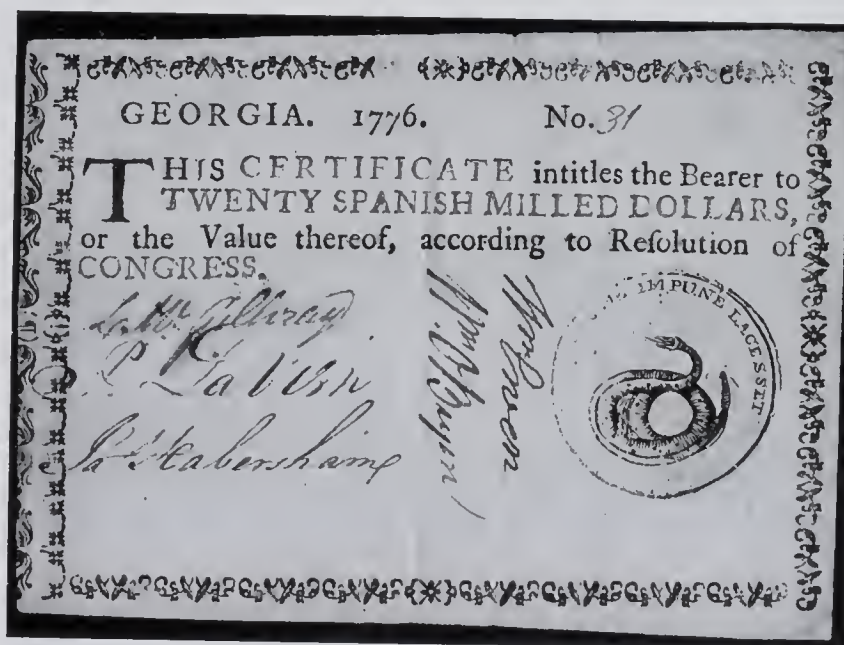 GEORGIA. 1776. No. 31
THIS CERTIFICATE intitles the Bearer to
TWENTY SPANISH MILLED DOLLARS,
or the Value thereof, according to Reſolution of
CONGRESS.
Habersham
Wm
IMPUNE LACESSET